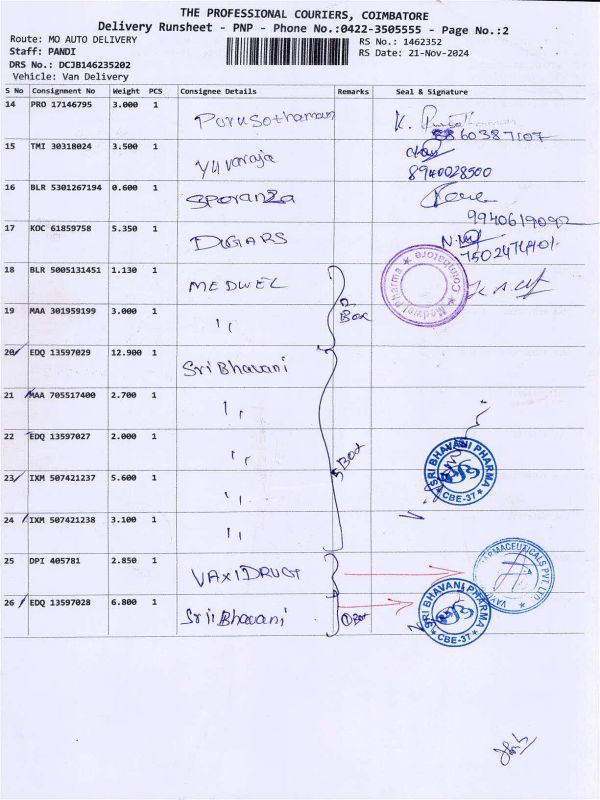 THE PROFESSIONAL COURIERS, COIMBATORE
Delivery Runsheet - PNP - Phone No.:0422-3505555 - Page No.:2
Route: MO AUTO DELIVERY
RS No.: 1462352
Staff: PANDI
RS Date: 21-Nov-2024
DRS No.: DCJB146235202
Vehicle: Van Delivery
S No Consignment No Weight PCS Consignee Details Remarks Seal & Signature
14 PRO 17146795 3.000 1 Porusothaman K.
8860387107
15 TMI 30318024 3.500 1 Yuvaraja
8940028500
16 BLR 5301267194 0.600 1 Speranza
9940619092
17 KOC 61859758 5.350 1 DIGARS
18 BLR 5005131451 1.130 1 MEDWEL
Medwel Pharma ★ Coimbatore ★
19 MAA 301959199 3.000 1 ",
2 Box
20 EDQ 13597029 12.900 1 Sri Bhavani
21 MAA 705517400 2.700 1 ",
22 EDQ 13597027 2.000 1 ",
5 Box
SRI BHAVANI PHARMA
★ CBE-37 ★
23 IXM 507421237 5.600 1 ",
24 IXM 507421238 3.100 1 ",
25 DPI 405781 2.850 1 VAXIDRUGT
26 EDQ 13597028 6.800 1 Sri Bhavani
① Box
SRI BHAVANI PHARMA
★ CBE-37 ★